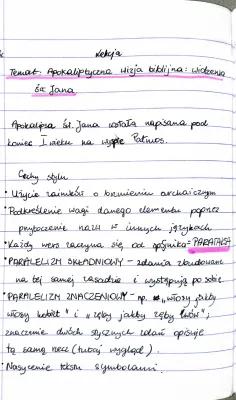 Lekcja
Temat: Apokaliptyczna wizja biblijna: widzenia
św. Jana
Apokalipsa św. Jana została napisana pod
koniec I wieku na wyspie Patmos.
Cechy stylu
• Użycie zaimków o brzmieniu archaicznym
• Podkreślenie wagi danego elementu poprzez
przytoczenie nazw w innych językach
• Każdy wers zaczyna się od spójnika = PARATAKSA
• PARALELIZM SKŁADNIOWY - zdania zbudowane
na tej samej zasadzie i występują po sobie
• PARALELIZM ZNACZENIOWY - np. "włosy jakby
włosy kobiet" i "zęby jakby zęby lwów";
znaczenie dwóch stycznych zdań opisuje
tą samą rzecz (tutaj wygląd).
• Nasycenie tekstu symbolami.